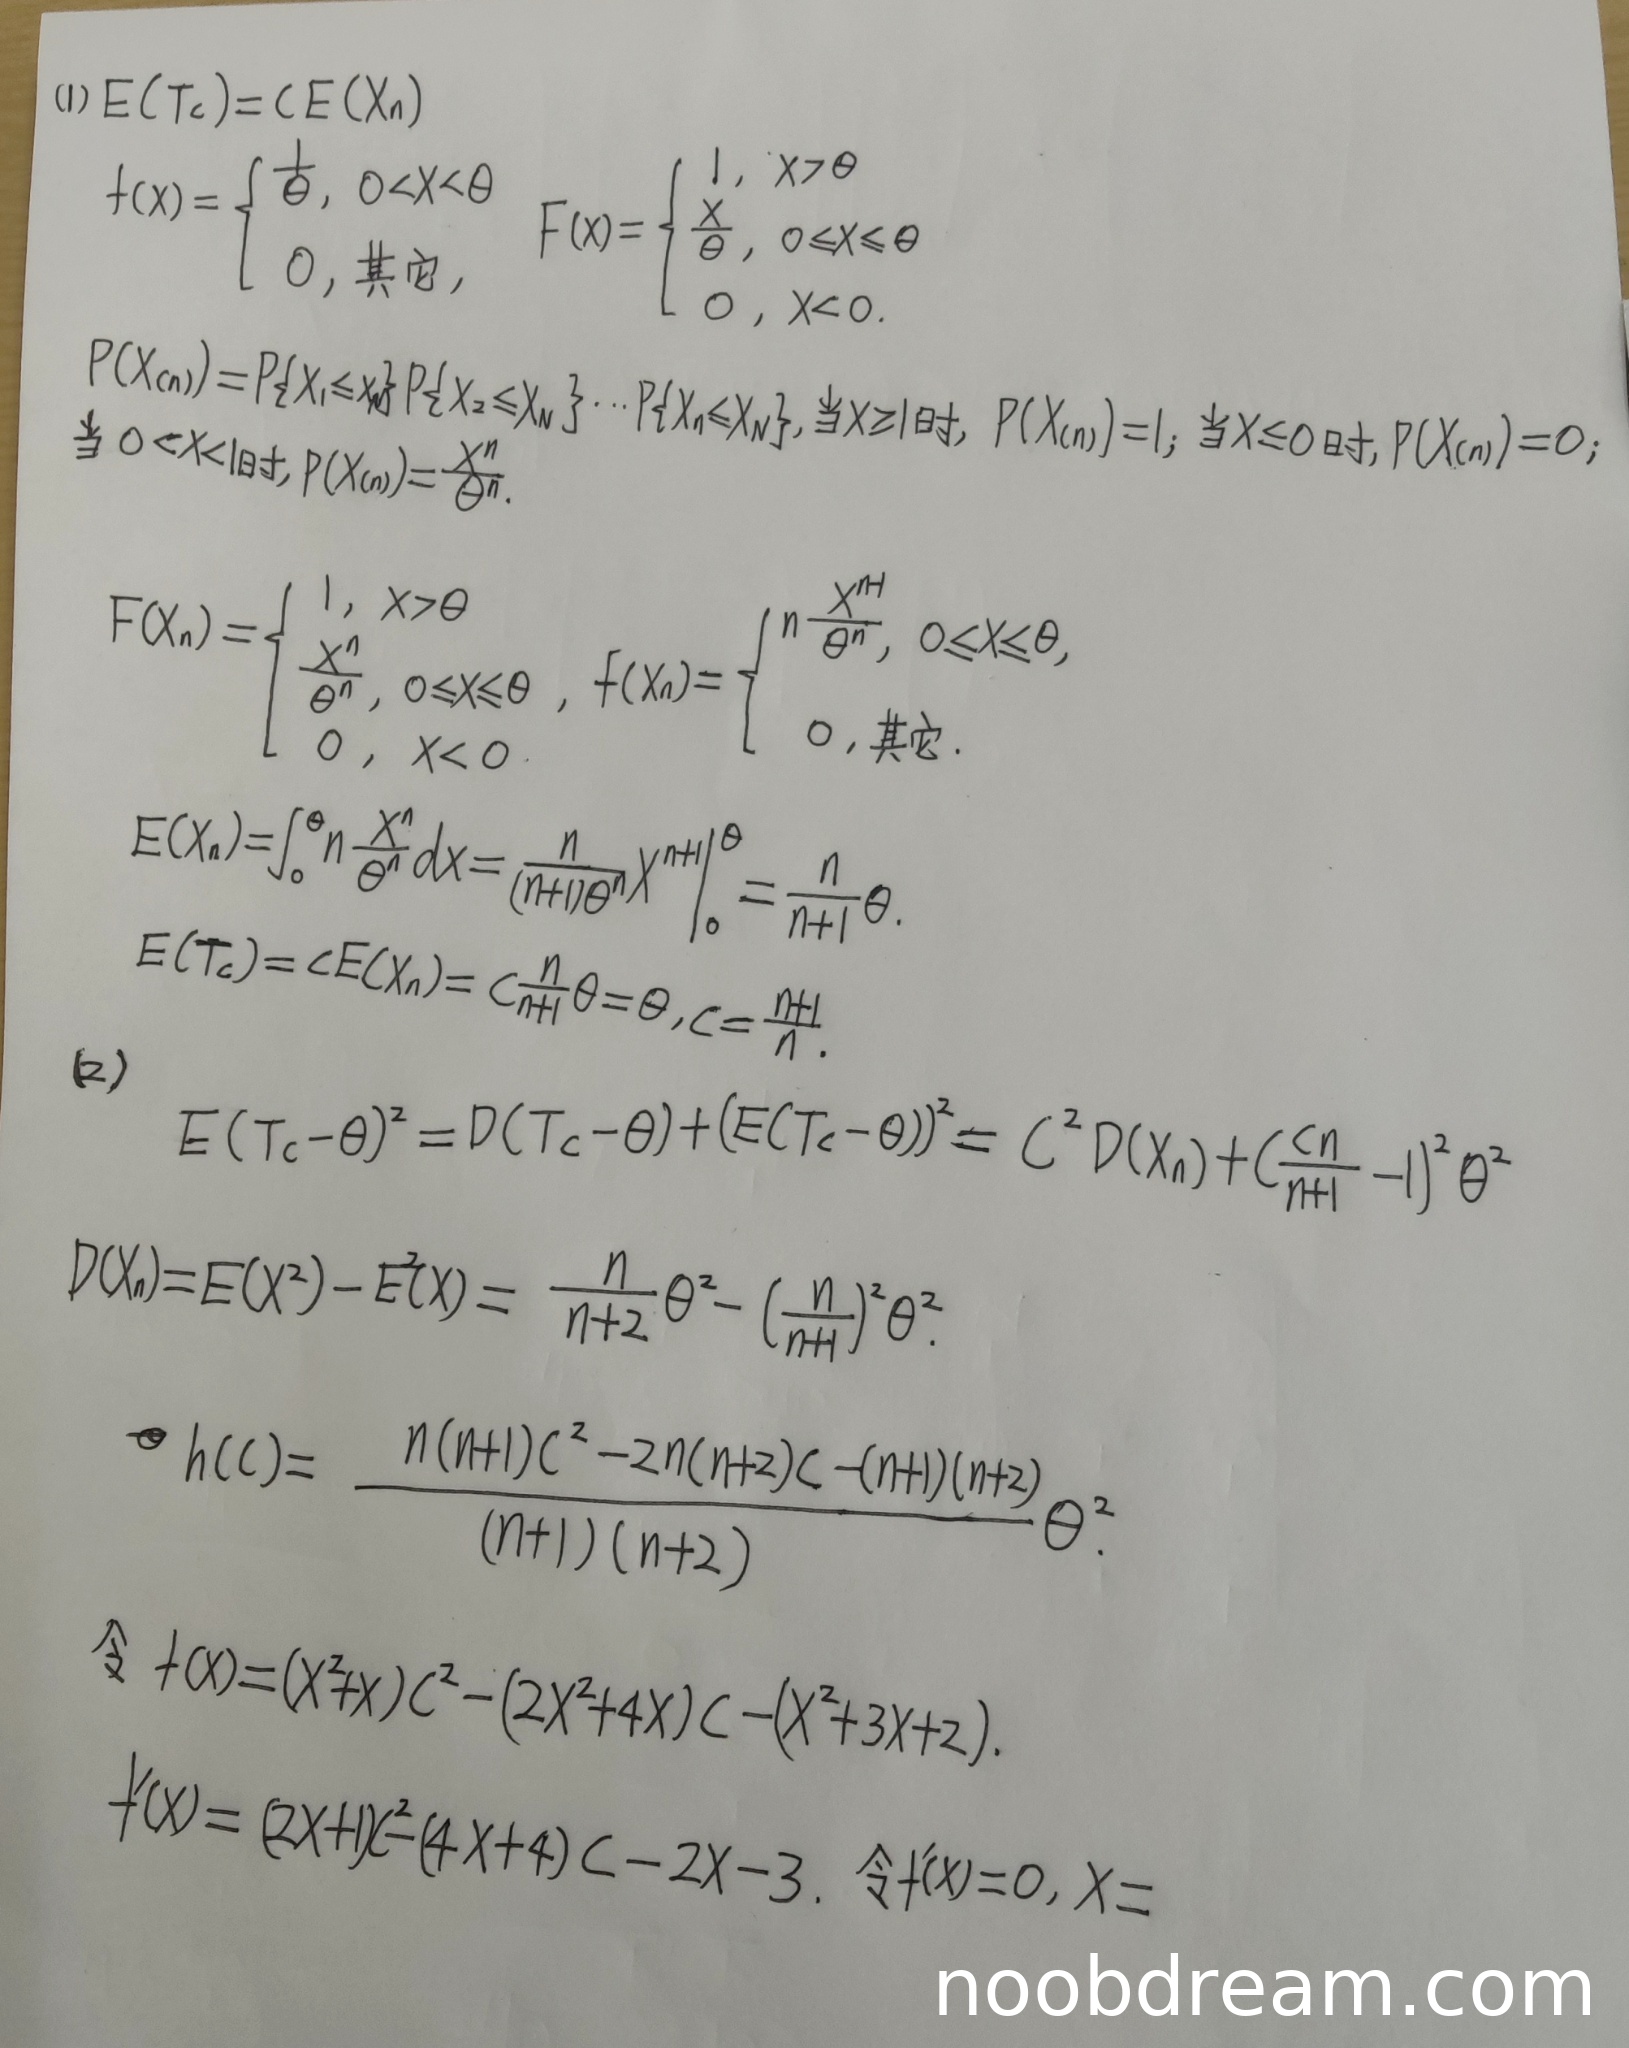 (1) E(Tc)=CE(Xn)
f(x)={1/θ, 0<x<θ
0, 其它,
F(x)={1, x>θ
x/θ, 0≤x≤θ
0, x<0.
P(X(n))=P{X₁≤XN}P{X₂≤XN}…P{Xn≤XN},当X≥1时, P(X(n))=1; 当X≤0时, P(X(n))=0;
当0<X<1时, P(X(n))=xⁿ/θⁿ.
F(Xn)={1, x>θ
xⁿ/θⁿ, 0≤x≤θ
0, x<0.
, f(Xn)={n xⁿ⁻¹/θⁿ, 0≤x≤θ,
0, 其它.
E(Xn)=∫₀^θ n xⁿ/θⁿ dx = n/((n+1)θⁿ) xⁿ⁺¹|₀^θ = n/(n+1) θ.
E(Tc)=cE(Xn)=c n/(n+1) θ=θ, c=(n+1)/n.
(2)
E(Tc-θ)²=D(Tc-θ)+(E(Tc-θ))²= C²D(Xn)+(cn/(n+1) -1)²θ²
D(Xn)=E(X²)-E²(X)= n/(n+2) θ²-(n/(n+1))²θ².
h(c)= (n(n+1)C²-2n(n+2)C-(n+1)(n+2))/((n+1)(n+2)) θ².
令 f(x)=(x²+x)C²-(2x²+4x)C-(x²+3x+2).
f'(x)=(2x+1)C²-(4x+4)C-2x-3. 令f'(x)=0, x=
noobdream.com